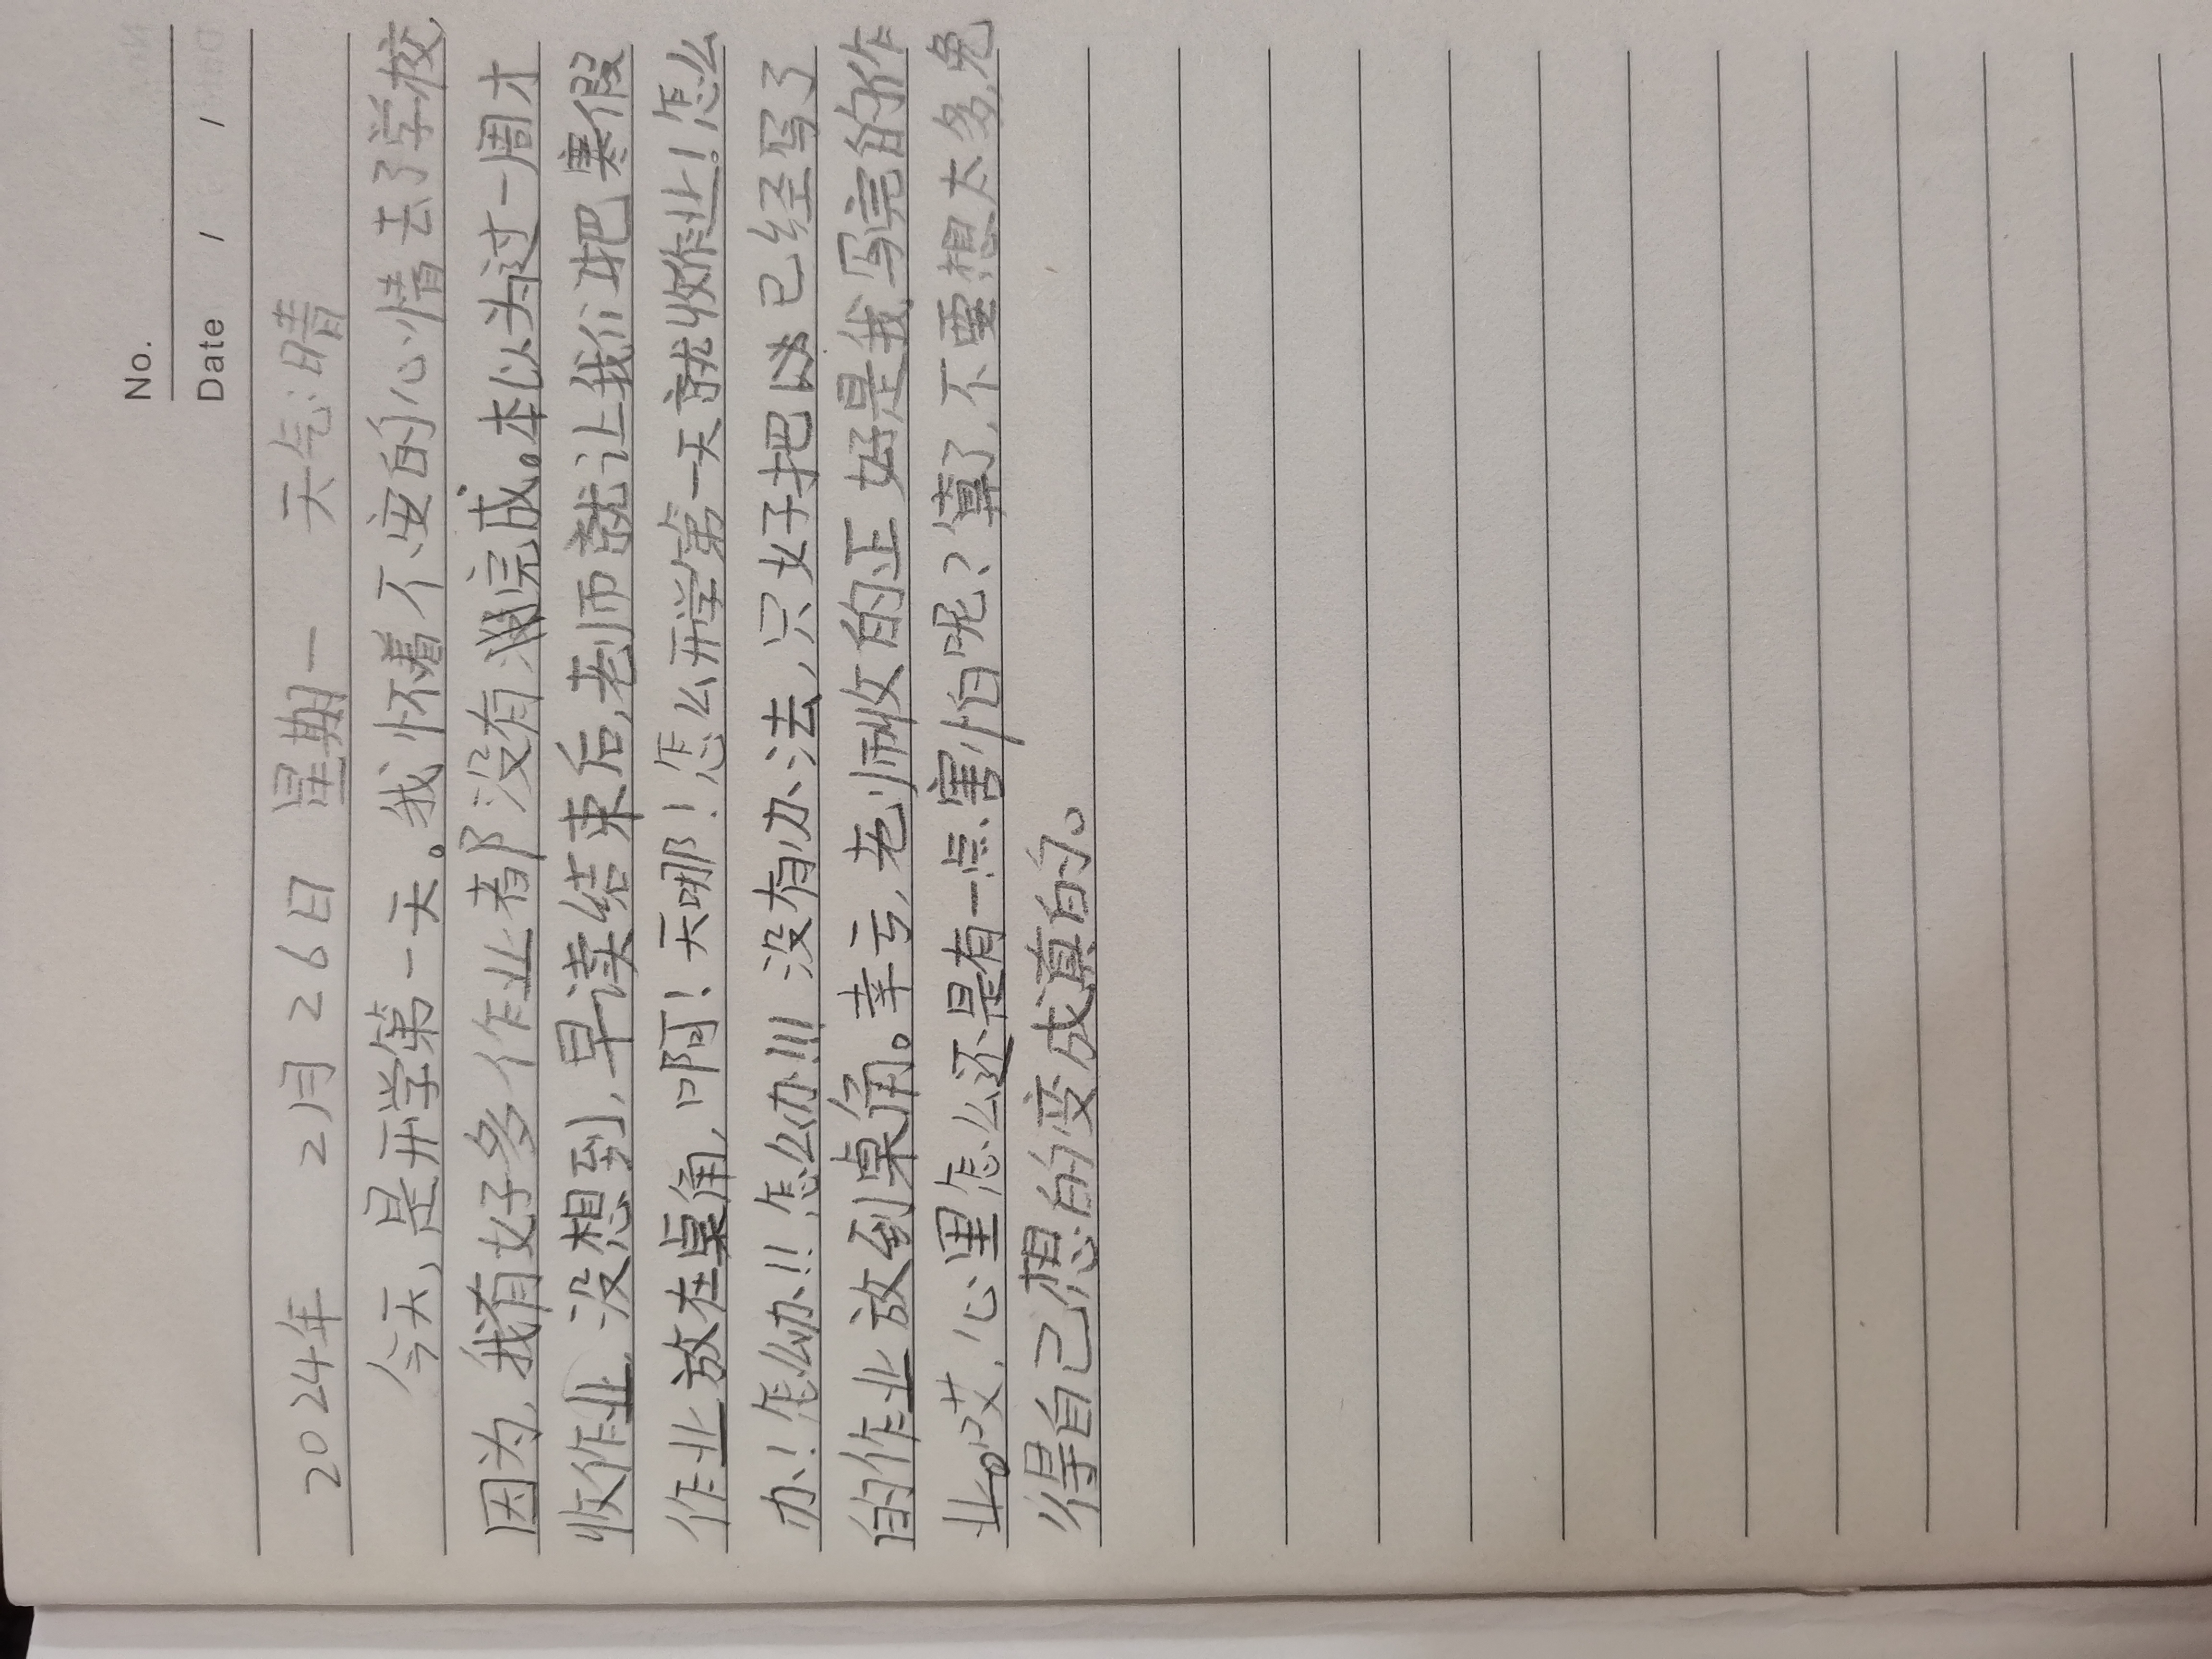 No.
Date / /
2024年 2月26日 星期一 天气:晴
今天,是开学第一天。我怀着不安的心情去了学校
因为,我有好多作业都没有完成。本以为过一周才
收作业,没想到,早读结束后,老师就让我们把寒假
作业放在桌角,啊!天哪!怎么开学第一天就收作业!怎么
办!怎么办!!怎么办!!!没有办法,只好把已经写了
的作业放到桌角。幸亏,老师收的正好是我写完的作
业。哎,心里怎么还是有一点害怕呢?算了,不要想太多,免
得自己想的变成真的。